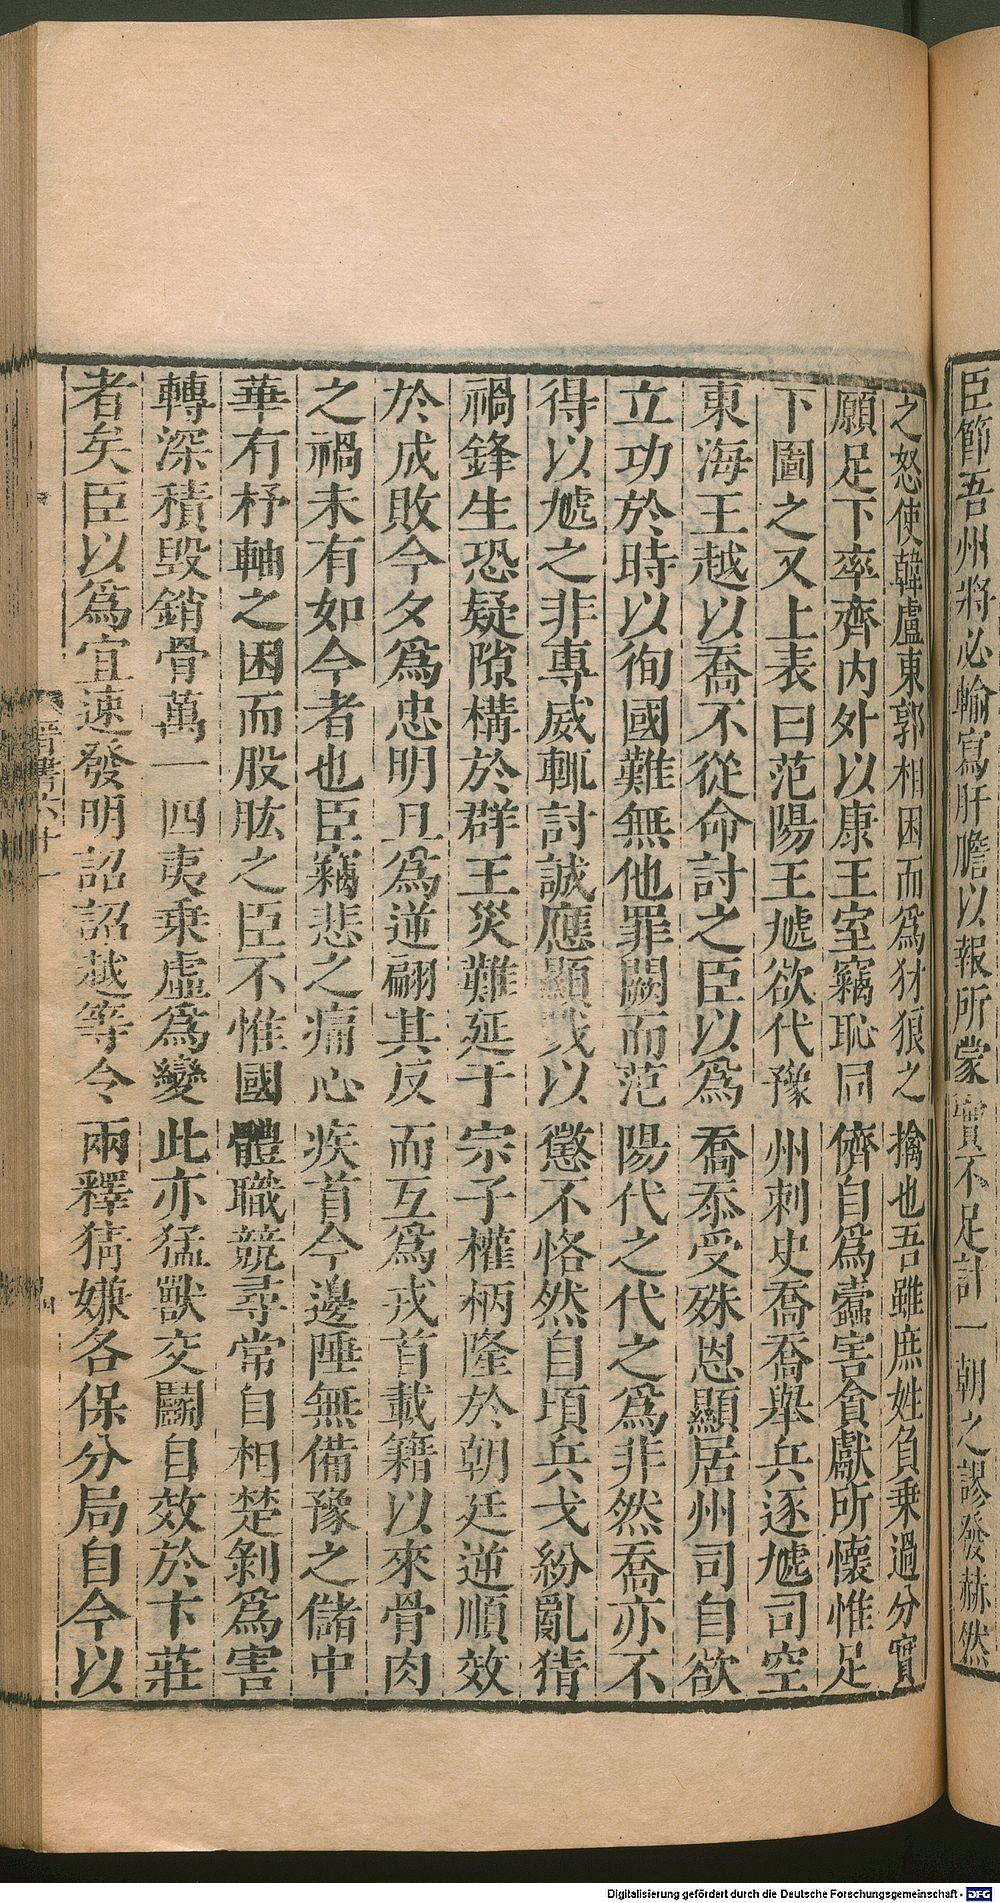 臣節吾州將必輸寫肝膽以報所蒙實不足計一朝之謬發赫然
之怒使韓盧東郭相困而爲犲狼之擒也吾雖庶姓負乗過分實
願足下率齊内外以康王室竊恥同儕自爲蠧害貪獻所懷惟足
下圖之又上表曰范陽王虓欲代豫州刺史喬喬舉兵逐虓司空
東海王越以喬不從命討之臣以爲喬忝受殊恩顯居州司自欲
立功於時以徇國難無他罪闕而范陽代之代之爲非然喬亦不
得以虓之非專威輒討誠應顯戮以懲不恪然自頃兵戈紛亂猜
禍鋒生恐疑隙構於群王災難延于宗子權柄隆於朝廷逆順效
於成敗今夕爲忠明旦爲逆翩其反而互爲戎首載籍以來骨肉
之禍未有如今者也臣竊悲之痛心疾首今邊陲無備豫之儲中
華有杼軸之困而股肱之臣不惟國體職競尋常自相楚剝爲害
轉深積毀銷骨萬一四夷乗虛爲變此亦猛獸交鬬自效於卞莊
者矣臣以爲宜速發明詔詔越等令兩釋猜嫌各保分局自今以
晉書六十一
四
Digitalisierung gefördert durch die Deutsche Forschungsgemeinschaft - DFG